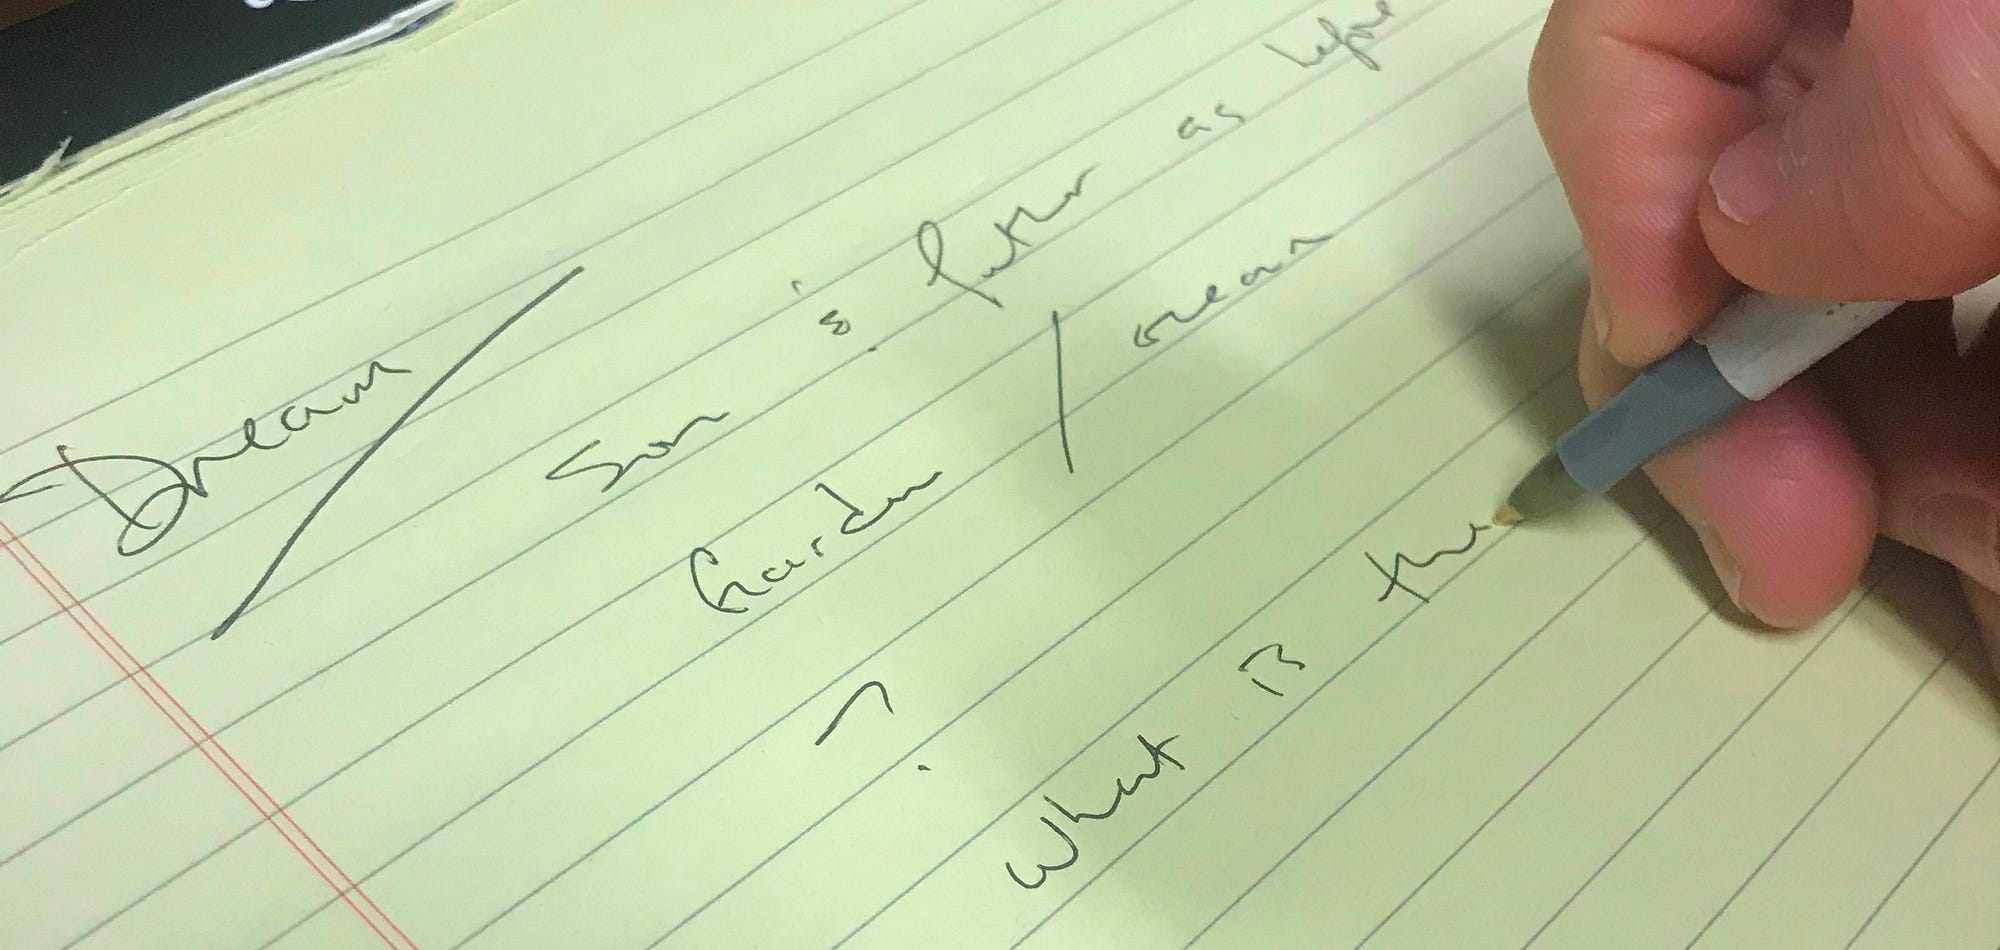 Dream /
Son is father as before
Garden / ocean
?
What is the